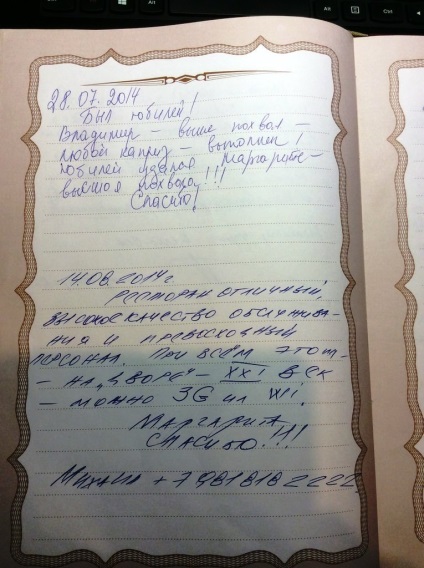 28.07.2014
Был юбилей!
Владимир – выше похвал –
любой каприз – выполнен!
Юбилей удался Маргарите –
высшая похвала!!!
Спасибо!
14.08.2014г.
Ресторан отличный,
высокое качество обслужива-
ния и превосходный
персонал. При всём этом –
– на „дворе“ – XXI век
– можно 3G или Wi.
Маргарита
Спасибо!!!
Михаил +7 981 818 2222
Ctrl